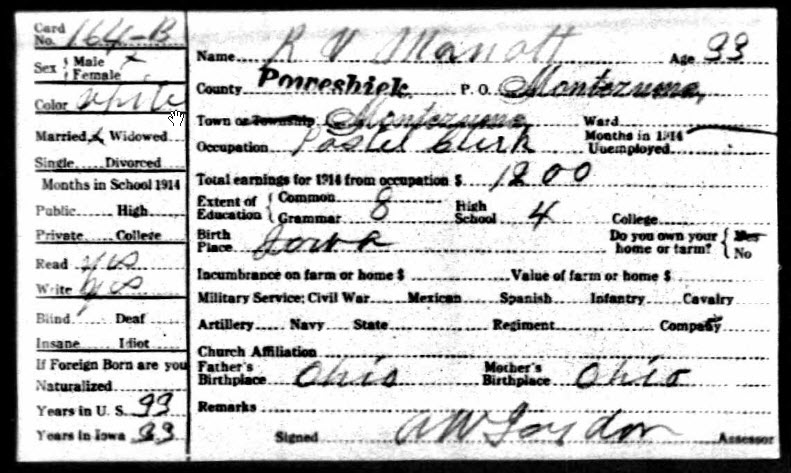 Card No. 164-B
Sex Male x
Female
Color White
Married x Widowed
Single Divorced
Months in School 1914
Public High
Private College
Read yes
Write yes
Blind Deaf
Insane Idiot
If Foreign Born are you
Naturalized
Years in U. S. 33
Years in Iowa 33
Name R V Manatt Age 33
County Poweshiek P. O. Montezuma,
Town or Township Montezuma Ward
Occupation Postel Clerk Months in 1914 Unemployed
Total earnings for 1914 from occupation $ 1200
Extent of Education Common
Grammar 8 High School 4 College
Birth Place Iowa Do you own your home or farm? Yes
No
Incumbrance on farm or home $ Value of farm or home $
Military Service: Civil War Mexican Spanish Infantry Cavalry
Artillery Navy State Regiment Company
Church Affiliation
Father's Birthplace Ohio Mother's Birthplace Ohio
Remarks
Signed A W Assessor